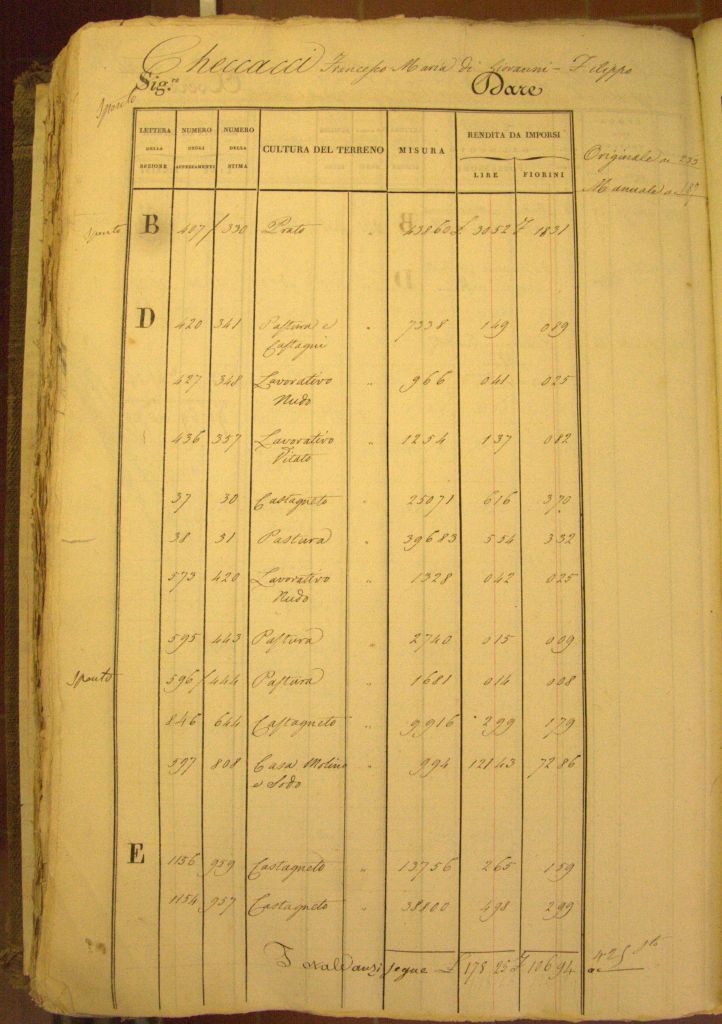 Checcacci Francesco Maria di Giovanni-Filippo
Sig.re Dare
Spento
LETTERA DELLA SEZIONE NUMERO DEGLI APPEZZAMENTI NUMERO DELLA STIMA CULTURA DEL TERRENO MISURA RENDITA DA IMPORSI
LIRE FIORINI
Originale a 233
Manuale a 187
Spento B 407 / 330 Prato " 43860 £ 3052 F 1831
D 420 341 Pastura e " 7338 149 089
Castagni
427 348 Lavorativo " 966 041 025
Nudo
436 357 Lavorativo " 1254 137 082
Vitato
37 30 Castagneto " 25071 616 370
38 31 Pastura " 39683 554 332
573 420 Lavorativo " 1328 042 025
Nudo
595 443 Pastura 2740 015 009
Spento 596 / 444 Pastura " 1681 014 008
846 644 Castagneto " 9916 299 179
597 808 Casa Molino " 994 12143 7286
e Sodo
E 1156 959 Castagneto " 13756 265 159
1154 957 Castagneto " 38800 498 299
segue £ 178 25 F 106 94 a 425